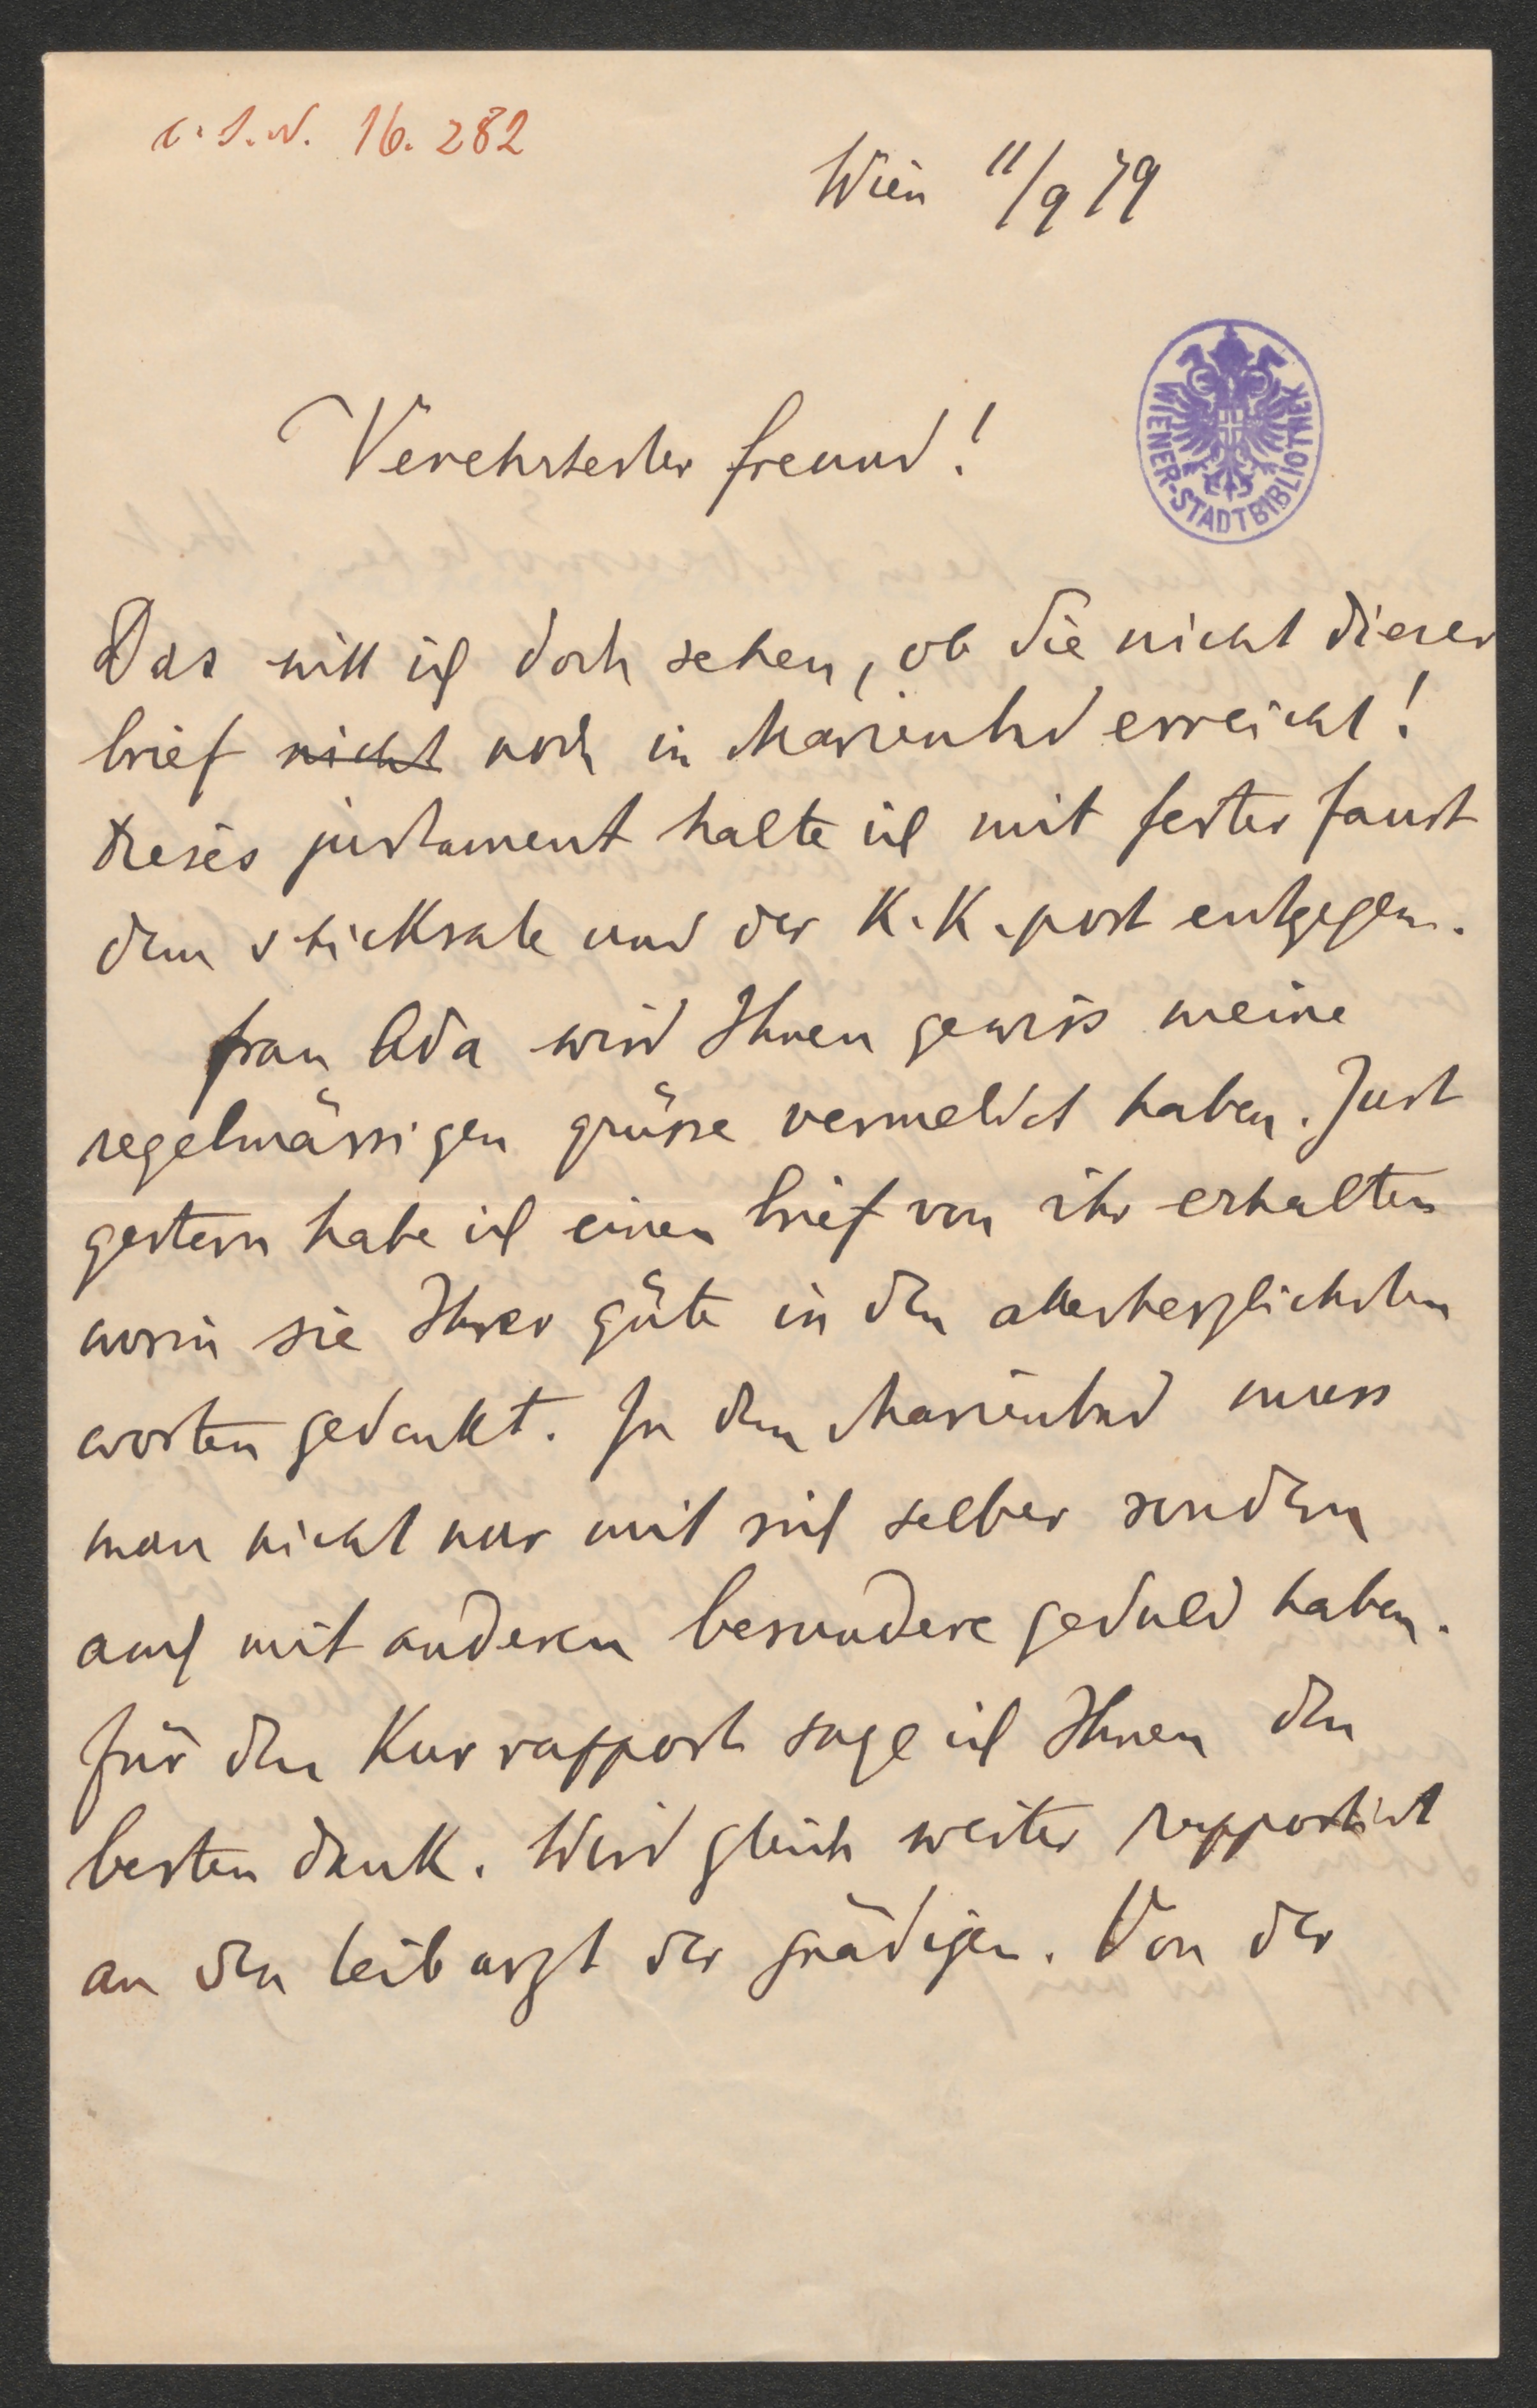 I. N. 16.282
Wien 11/9 79
WIENER-STADTBIBLIOTHEK
Verehrtester freund!
Das will ich doch sehen, ob Sie nicht dieser
brief nicht noch in Marienbad erreicht!
Dieses justament halte ich mit fester faust
dem schicksale und der K. K. post entgegen.
frau Ada wird Ihnen gewiss meine
regelmässigen grüsse vermeldet haben. Just
gestern habe ich einen brief von ihr erhalten
worin sie Ihrer güte in den allerherzlichsten
worten gedenkt. In dem Marienbad muss
man nicht nur mit sich selber sondern
auch mit anderen besondere geduld haben.
für den Kurrapport sage ich Ihnen den
besten dank. Wird gleich weiter rapportirt
an den leibarzt der gnädigen. Von der